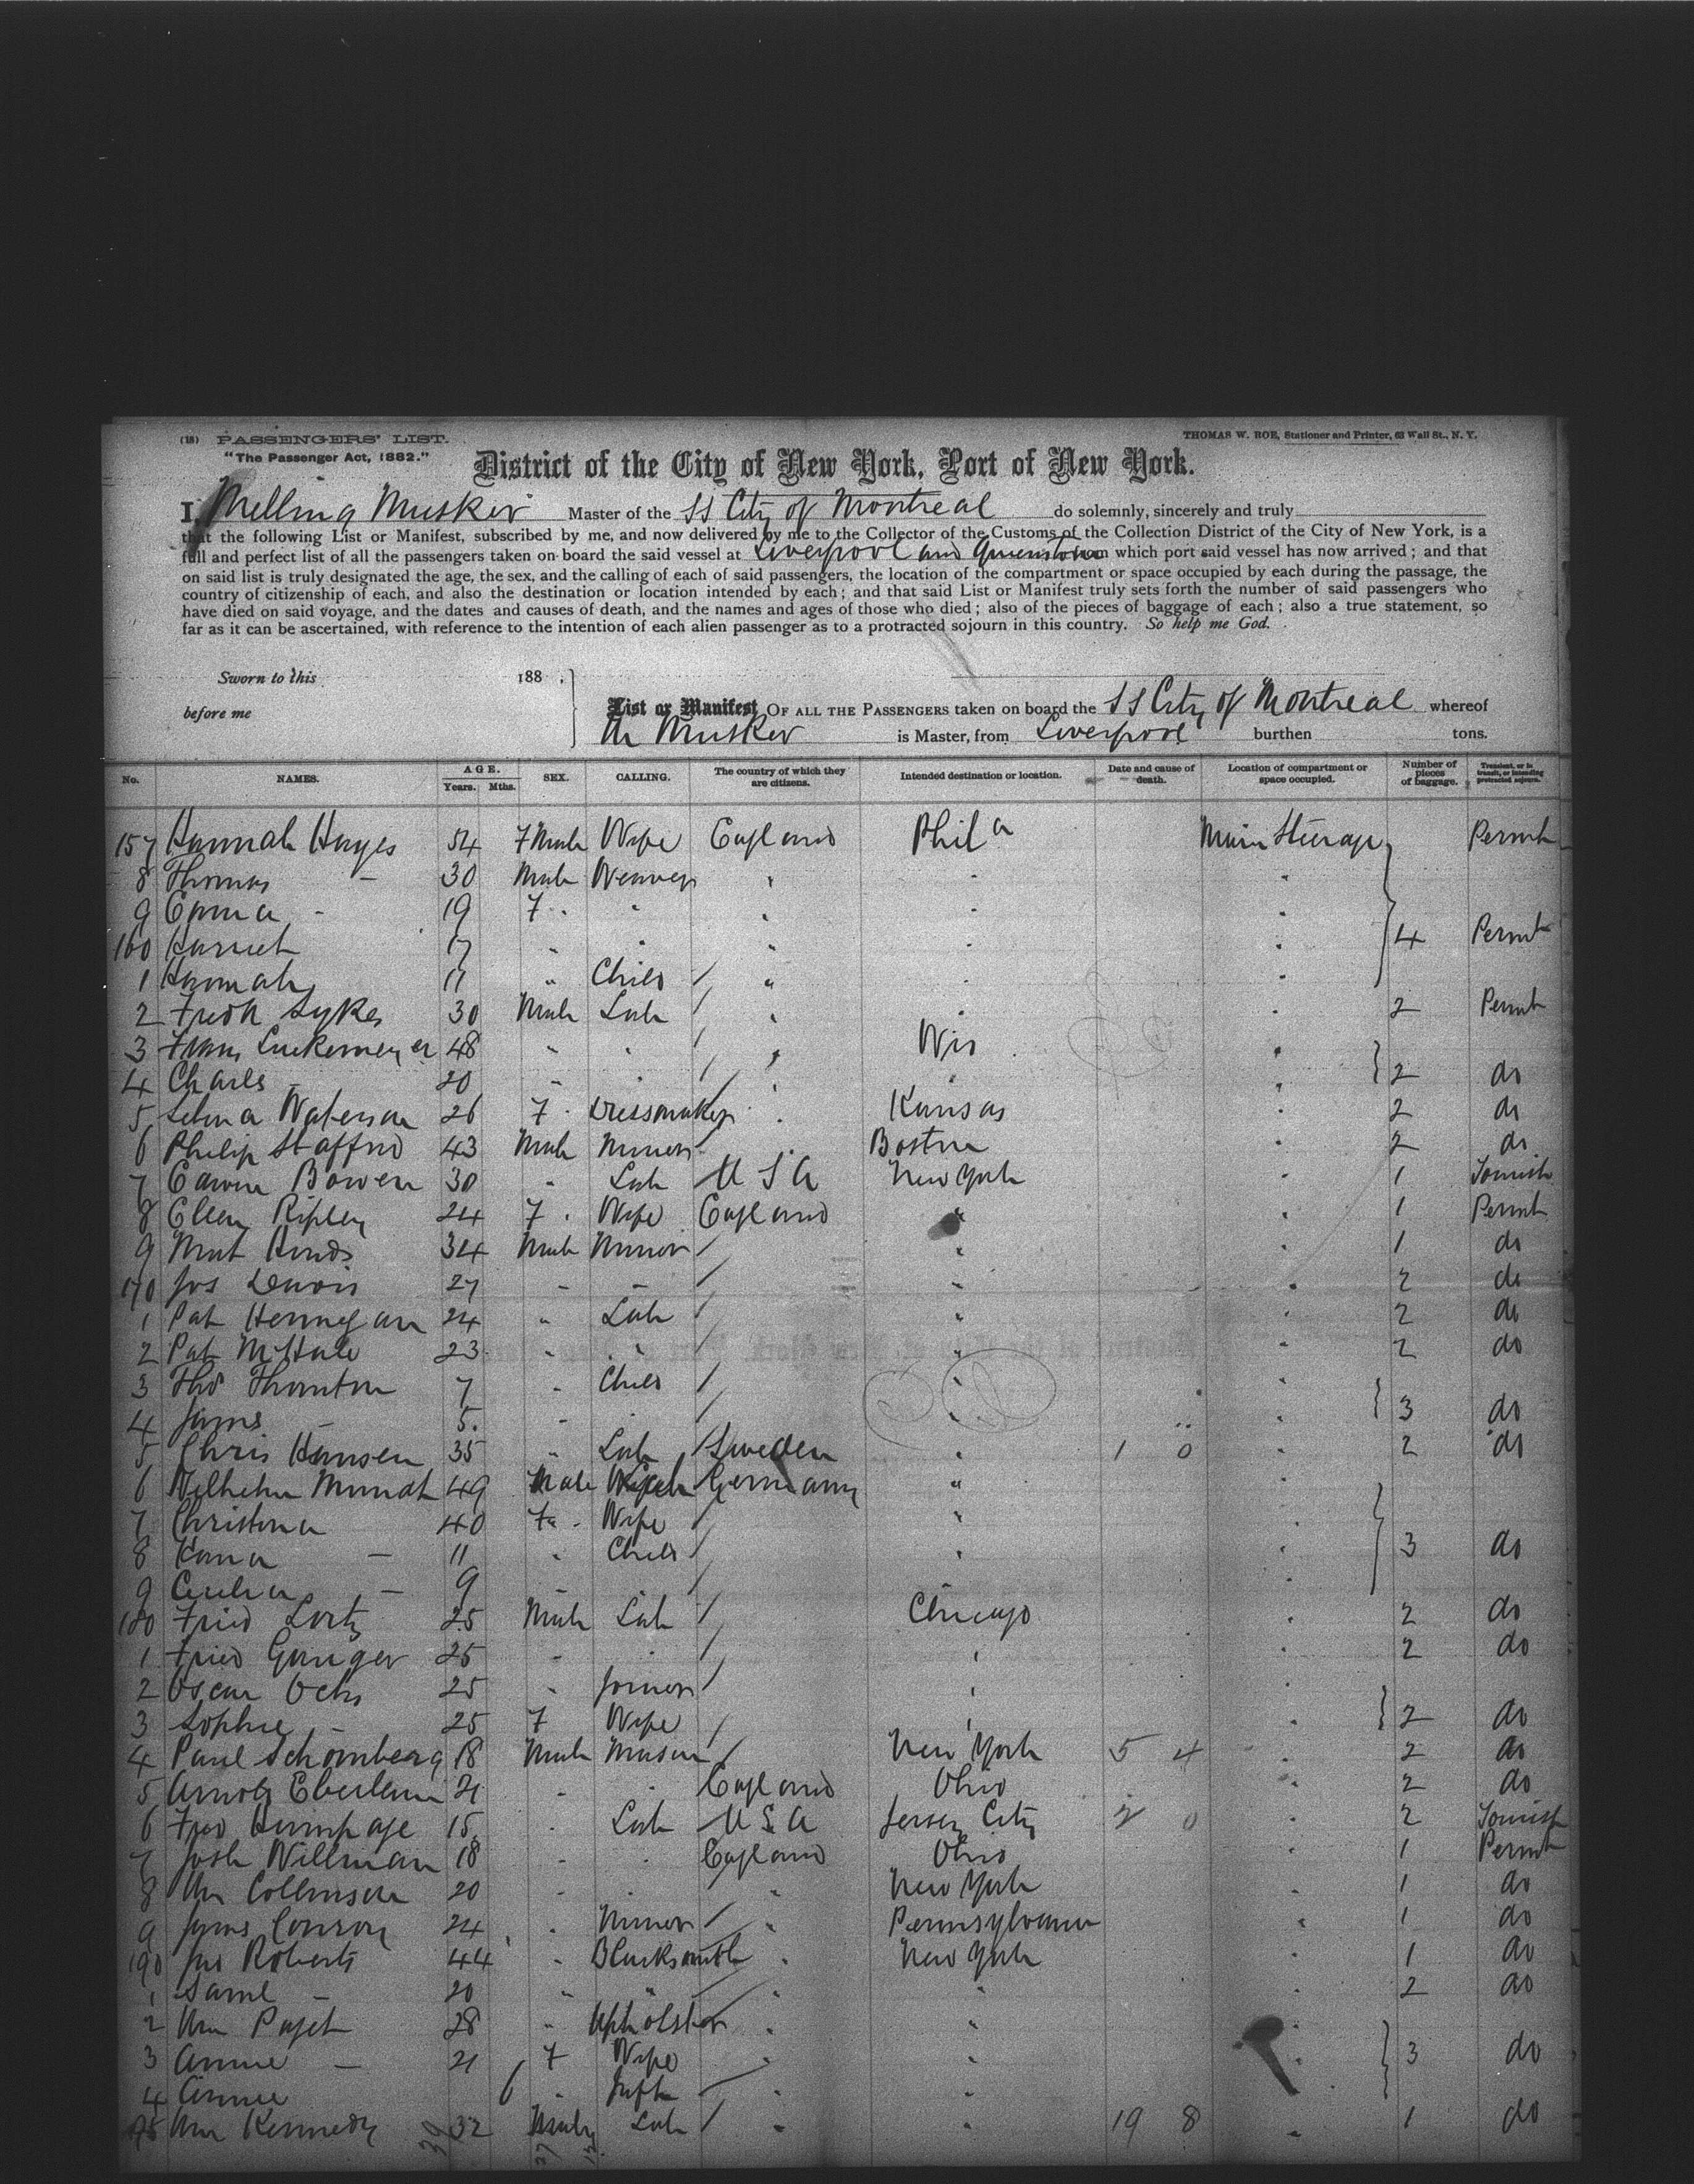 (18) PASSENGERS' LIST.
THOMAS W. ROE, Stationer and Printer, 63 Wall St., N. Y.
"The Passenger Act, 1882."
District of the City of New York, Port of New York.
I, Melling Musker Master of the SS City of Montreal do solemnly, sincerely and truly
that the following List or Manifest, subscribed by me, and now delivered by me to the Collector of the Customs of the Collection District of the City of New York, is a
full and perfect list of all the passengers taken on board the said vessel at Liverpool and Queenstown which port said vessel has now arrived; and that
on said list is truly designated the age, the sex, and the calling of each of said passengers, the location of the compartment or space occupied by each during the passage, the
country of citizenship of each, and also the destination or location intended by each; and that said List or Manifest truly sets forth the number of said passengers who
have died on said voyage, and the dates and causes of death, and the names and ages of those who died; also of the pieces of baggage of each; also a true statement, so
far as it can be ascertained, with reference to the intention of each alien passenger as to a protracted sojourn in this country. So help me God.
Sworn to this 188 .
before me
List or Manifest OF ALL THE PASSENGERS taken on board the SS City of Montreal whereof
M Musker is Master, from Liverpool burthen tons.
No. NAMES. AGE. Years. Mths. SEX. CALLING. The country of which they are citizens. Intended destination or location. Date and cause of death. Location of compartment or space occupied. Number of pieces of baggage. Transient, or in transit, or intending protracted sojourn.
157 Hannah Hayes 54 F Male Wife England Phila Main Steerage Permt
8 Thomas - 30 Male Weaver " " "
9 Emma - 19 F " " " " "
160 Harriet 17 " " " " " 4 Permt
1 Hannah 11 " Child / " " "
2 Fredk Sykes 30 Male Lab / " " " 2 Permt
3 Franz Luckemeyer 48 " " / " Wis "
4 Charles - 20 " " / " " " 2 do
5 Selma Waterson 26 F " Dressmaker " Kansas " 2 do
6 Philip Stafford 43 Male Miner / " Boston " 2 do
7 Edwin Bowen 30 " Lab U S A New York " 1
8 Ellen Ripley 24 F " Wife England " " 1 Permt
9 Mat Hinds 34 Male Miner / " " 1 do
170 Jos Davis 27 " " / " " 2 do
1 Pat Hennegan 24 " Lab / " " 2 do
2 Pat McHale 23 " " / " " 2 do
3 Thos Thornton 7 " Child / " "
4 James - 5 " / " " 3 do
5 Chris Hansen 35 " Lab / Sweden " 1 0 " 2 do
6 Wilhelm Mundt 49 Male Germany "
7 Christina 40 F " Wife / " "
8 - 11 " Child / " " 3 do
9 Cecilia - 9 " / "
180 Fried Lortz 25 Male Lab / Chicago " 2 do
1 Fried 25 " / " " 2 do
2 Oscar Ochs 25 " Joiner / " "
3 Sophie - 25 F Wife / " " 2 do
4 Paul Schomberg 18 Male Mason / New York 5 4 " 2 do
5 Arnold Eberlein 21 " " England Ohio " 2 do
6 Fred Humpage 15 " Lab U S A Jersey City 2 0 " 2
7 Josh Willman 18 " " England Ohio " 1 Permt
8 Wm Collinson 20 " " " New York " 1 do
9 James Conroy 24 " Miner / " Pennsylvania " 1 do
190 Jno Roberts 44 " Blacksmith " New York " 1 do
1 Saml - 20 " " / " " " 2 do
2 Wm Paget 28 " Upholster " " "
3 Annie - 21 F Wife " " " 3 do
4 Annie 6 " Inft / " "
195 Wm Kennedy 32 Male Lab / " " 19 8 " 1 do